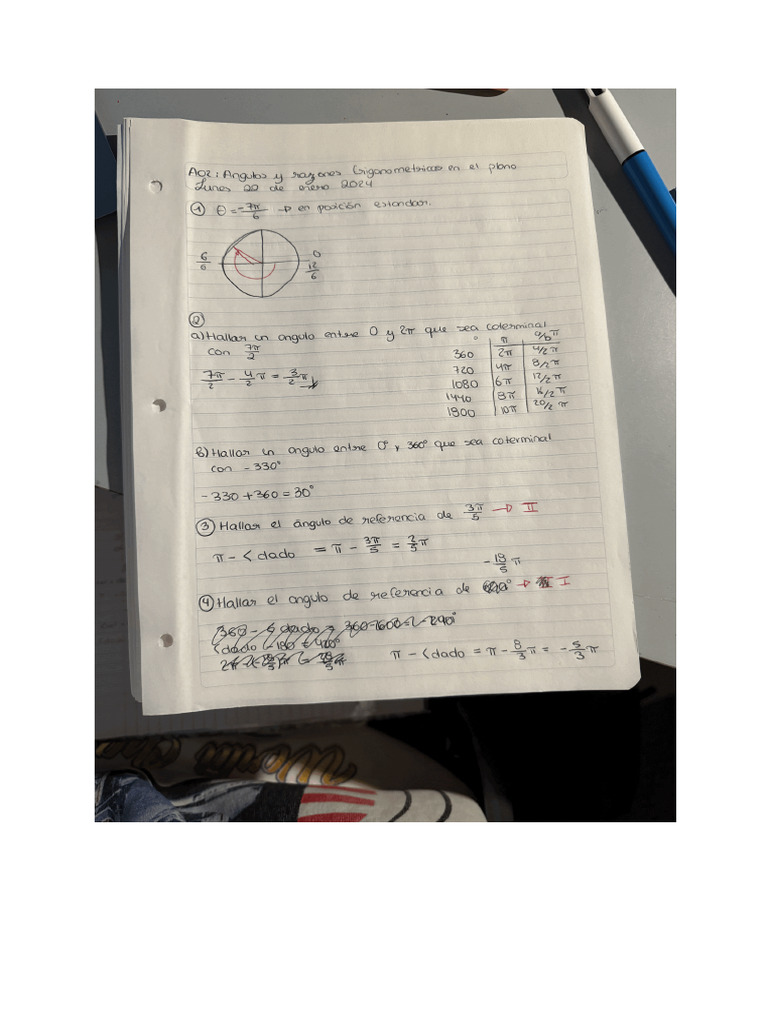 A02: Angulos y razones trigonometricas en el plano
Lunes 22 de enero 2024
① θ = -7π/6 → en posición estandar.
6/6
0
12/6
②
a) Hallar un angulo entre 0 y 2π que sea coterminal
con 7π/2
7π/2 - 4/2 π = 3/2 π
° π a/b π
360 2π 4/2 π
720 4π 8/2 π
1080 6π 12/2 π
1440 8π 16/2 π
1800 10π 20/2 π
b) Hallar un angulo entre 0° y 360° que sea coterminal
con -330°
-330 + 360 = 30°
③ Hallar el ángulo de referencia de 3π/5 → II
π - < dado = π - 3π/5 = 2/5 π
④ Hallar el angulo de referencia de → I
π - < dado = π - 8/3 π = - 5/3 π